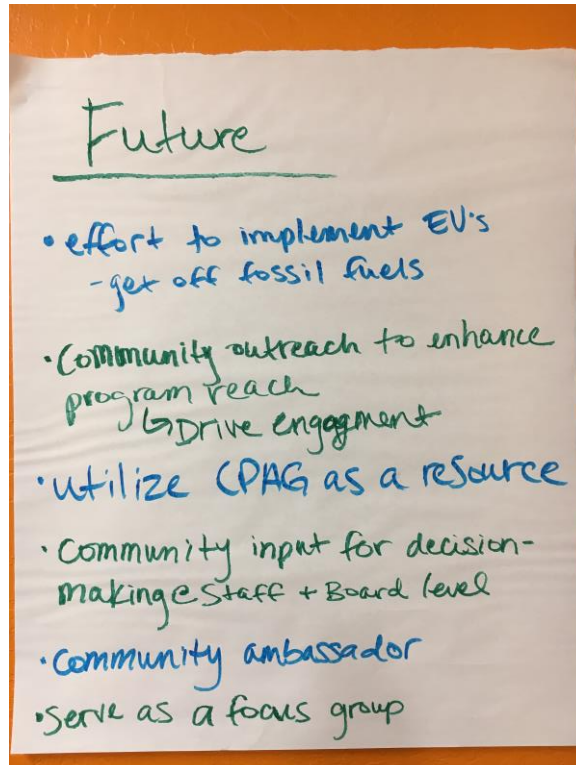 Future
• effort to implement EV's
- get off fossil fuels
• Community outreach to enhance
program reach
↳ Drive engagment
• utilize CPAG as a resource
• Community input for decision-
making @ Staff + Board level
• Community ambassador
• serve as a focus group